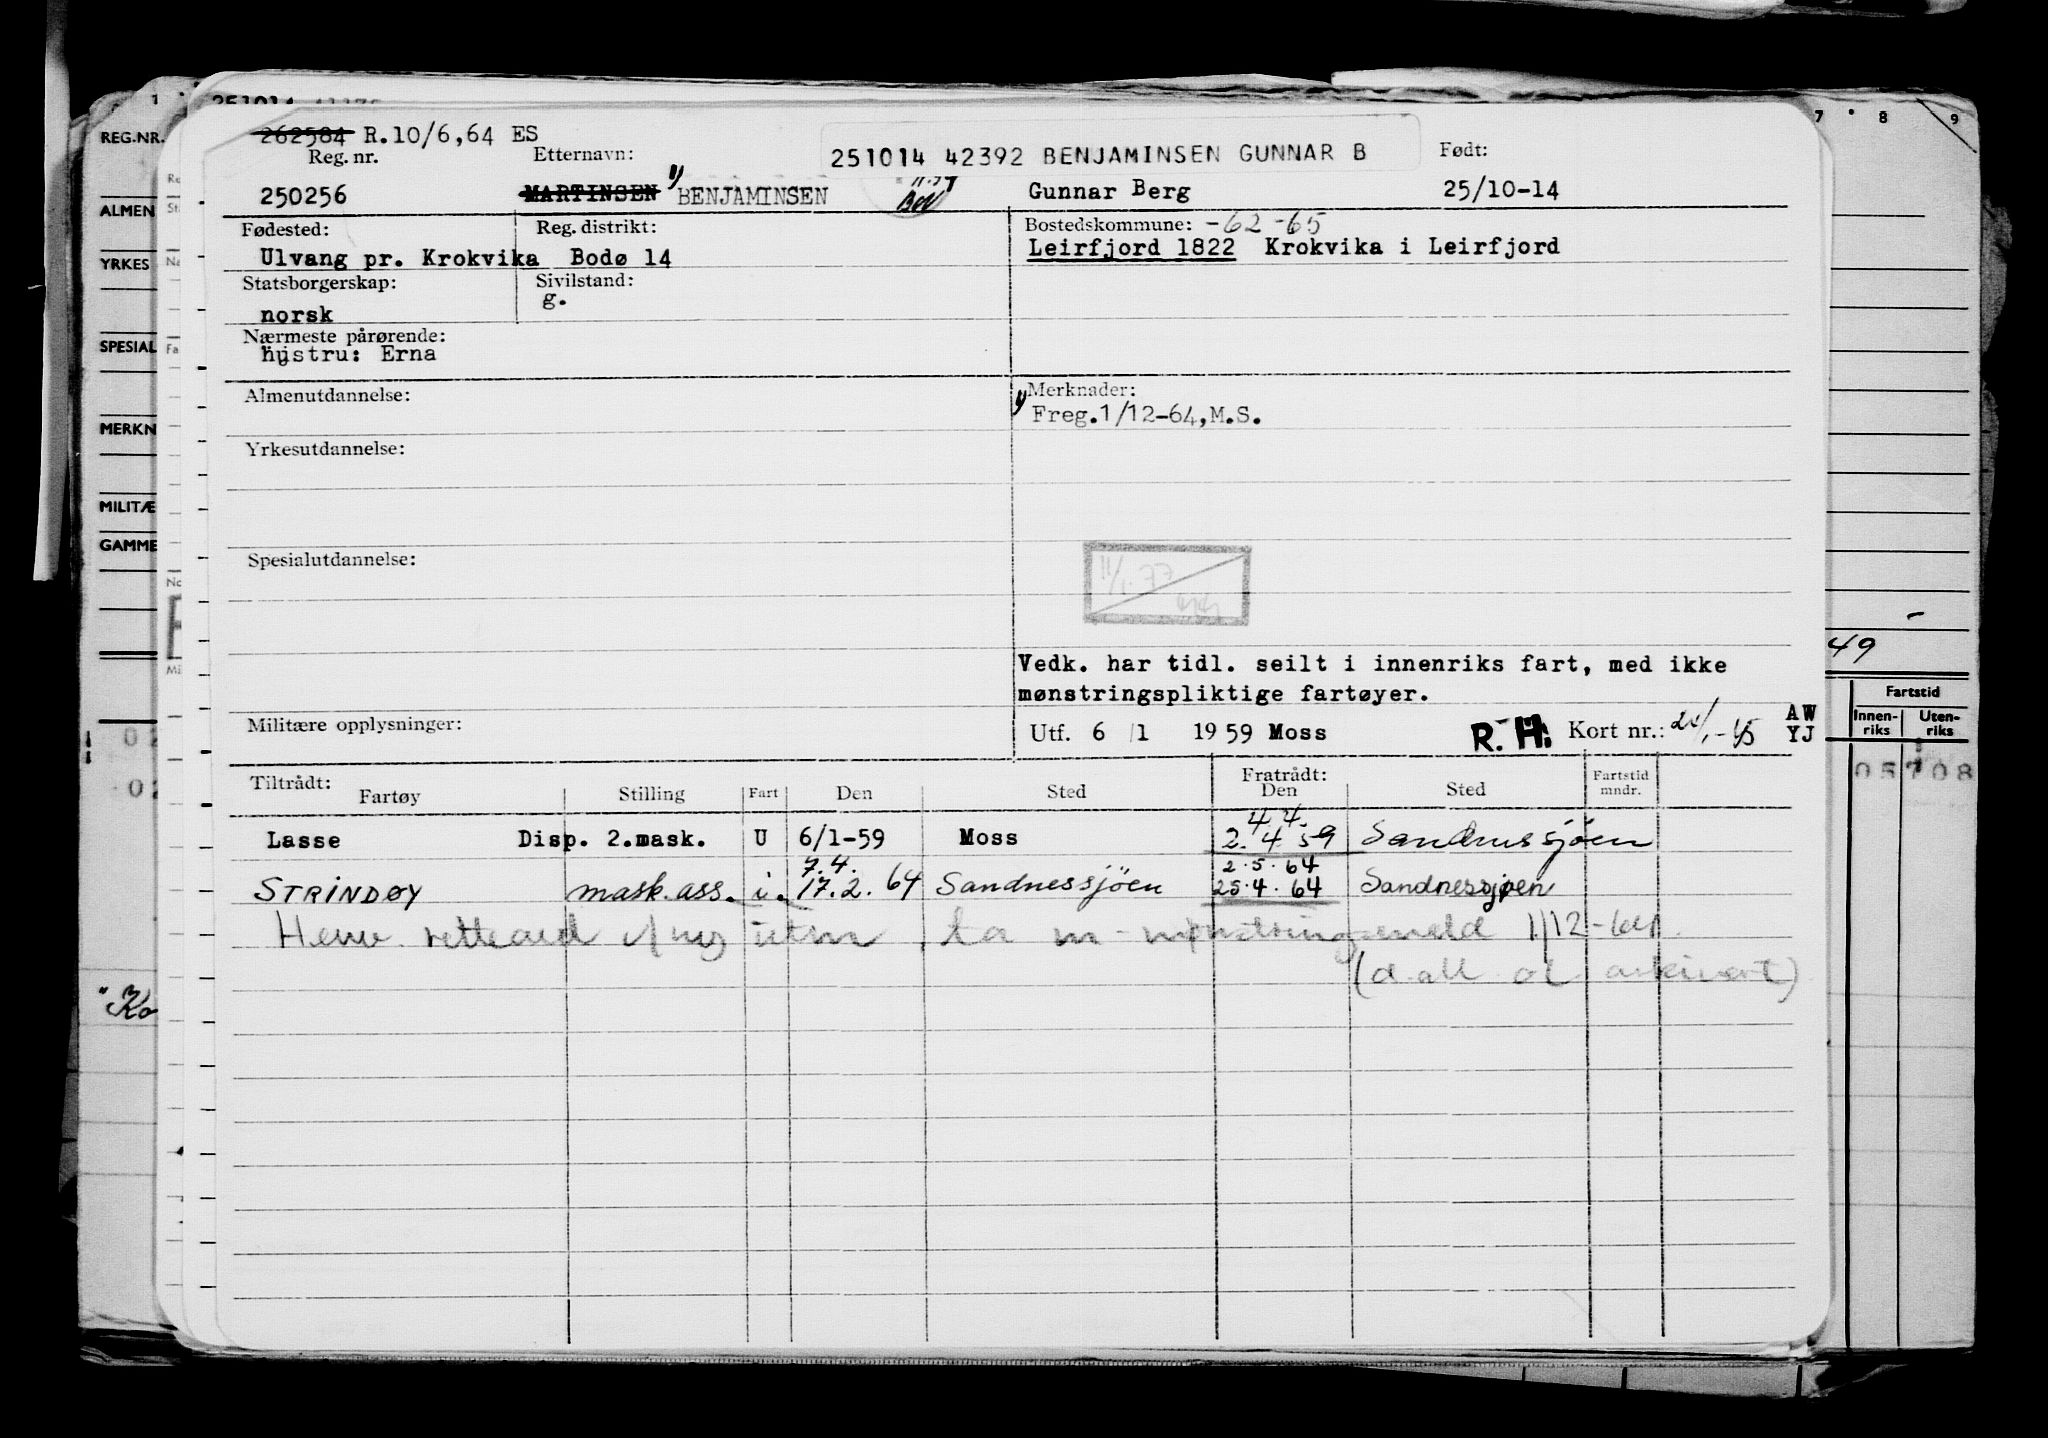 262584 R.10/6,64 ES
Reg. nr. Etternavn: 251014 42392 BENJAMINSEN GUNNAR B Født:
250256 MARTINSEN 1) BENJAMINSEN Gunnar Berg 25/10-14
Fødested: Reg. distrikt: Bostedskommune: -62-65
Ulvang pr. Krokvika Bodø 14 Leirfjord 1822 Krokvika i Leirfjord
Statsborgerskap: Sivilstand:
norsk g.
Nærmeste pårørende:
hustru: Erna
Almenutdannelse: 1) Merknader:
Freg.1/12-64,M.S.
Yrkesutdannelse:
Spesialutdannelse:
11/1.77
Vedk. har tidl. seilt i innenriks fart, med ikke
mønstringspliktige fartøyer.
Militære opplysninger: Utf. 6/1 1959 Moss R. H. Kort nr.: AW
YJ
Tiltrådt: Fratrådt: Fartstid
Fartøy Stilling Fart Den Sted Den Sted mndr.
4.4.
Lasse Disp. 2.mask. U 6/1-59 Moss 2. 4 59 Sandnessjöen
7.4. 2.5.64
STRINDØY mask.ass. i. 17.2.64 Sandnessjöen 25.4.64 Sandnessjøen
m mønstringsmeld 1/12-64
arkivert)
REG.NR.
ALMEN
YRKES
SPESIAL
MERKN
MILITÆ
GAMME
7 8 9
49
Fartstid
Innen-
riks
Uten-
riks
05708
"Ko